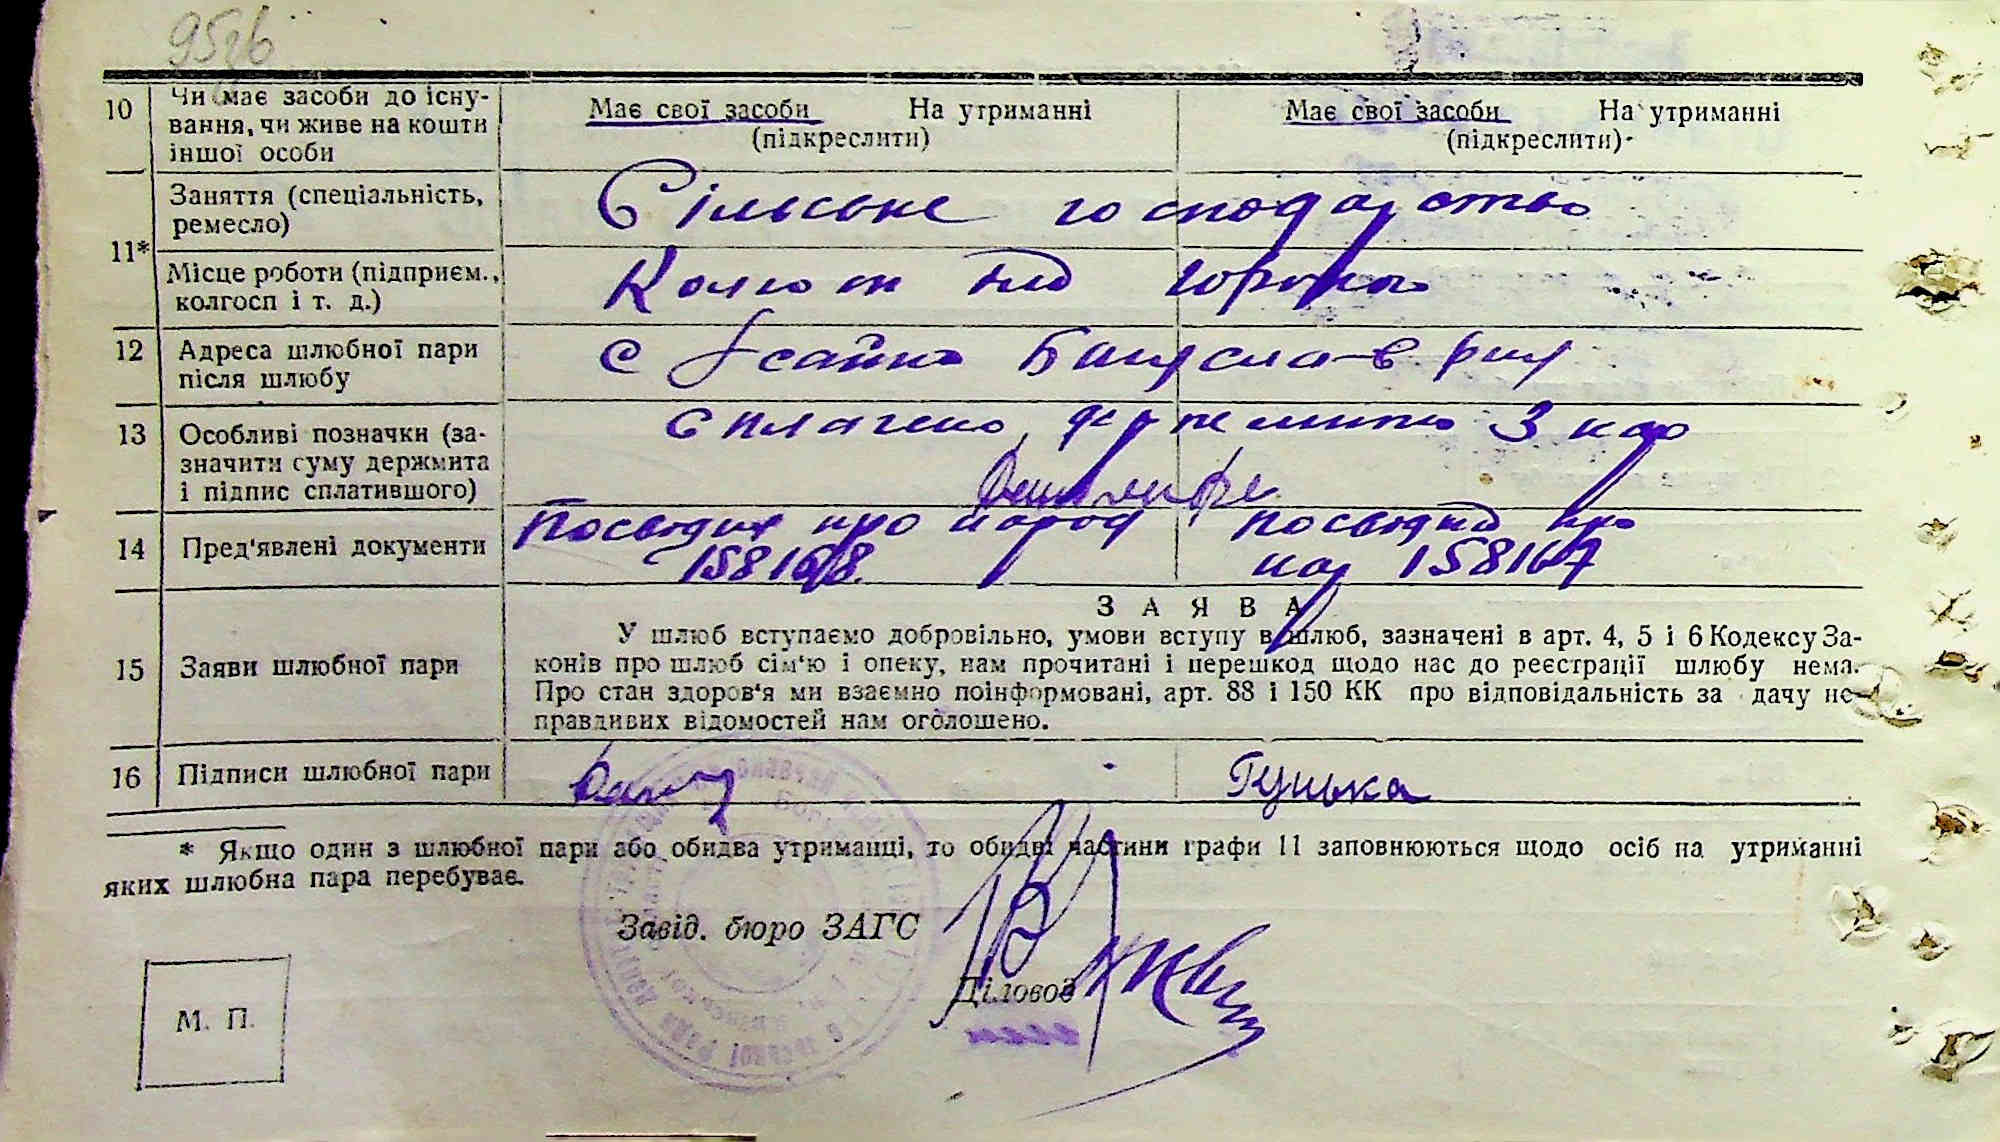 95
10 Чи має засоби до існу-
вання, чи живе на кошти
іншої особи
Має свої засоби На утриманні
(підкреслити)
Має свої засоби На утриманні
(підкреслити)
11*
Заняття (спеціальність,
ремесло)
Сільське господарство
Місце роботи (підприєм.,
колгосп і т. д.)
Колгосп
12 Адреса шлюбної пари
після шлюбу
с
13 Особливі позначки (за-
значити суму держмита
і підпис сплатившого)
Сплачено держмито 3 кар
14 Пред'явлені документи
Посвідка про народ
158168
посвідка про
нар 158167
15 Заяви шлюбної пари
ЗАЯВА
У шлюб вступаємо добровільно, умови вступу в шлюб, зазначені в арт. 4, 5 і 6 Кодексу За-
конів про шлюб сім'ю і опеку, нам прочитані і перешкод щодо нас до реєстрації шлюбу нема.
Про стан здоров'я ми взаємно поінформовані, арт. 88 і 150 КК про відповідальність за дачу не-
правдивих відомостей нам оголошено.
16 Підписи шлюбної пари
Гуцька
* Якщо один з шлюбної пари або обидва утриманці, то обидві частини графи 11 заповнюються щодо осіб на утриманні
яких шлюбна пара перебуває.
Завід. бюро ЗАГС
Діловод
М. П.